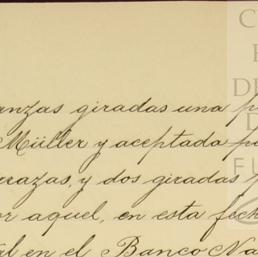 anzas giradas una p
Müller y aceptada po
rrazas, y dos giradas
or aquel, en esta fech
al en el Banco Na